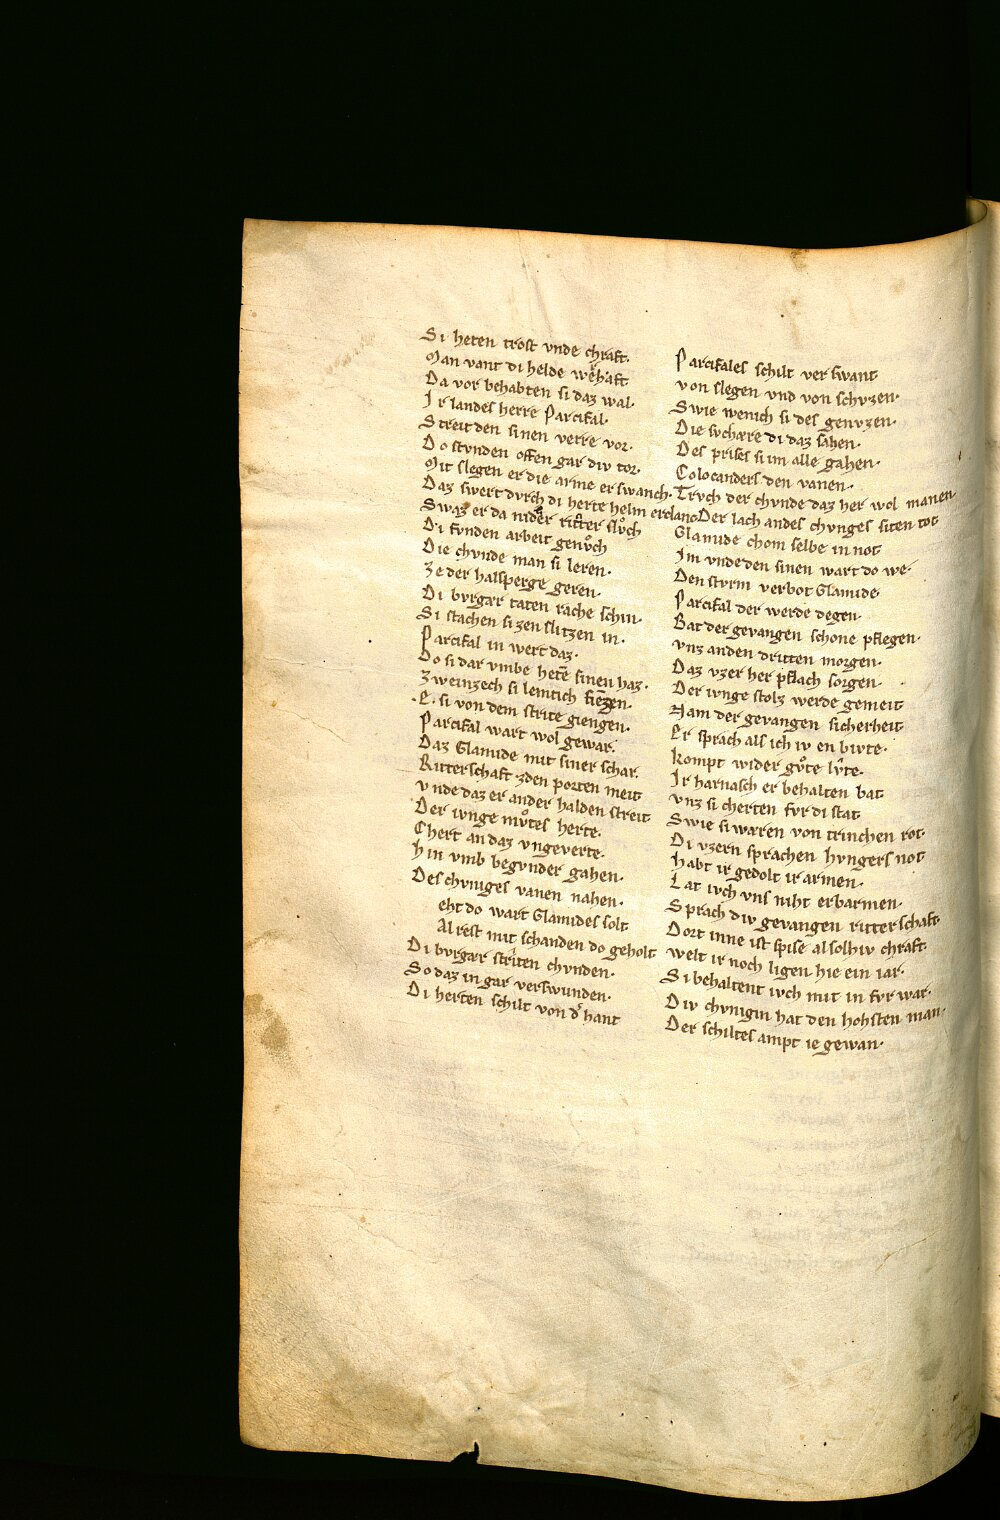 Si heten trost vnde chraft·
Man vant di helde werhaft
Da vor behabten si daz wal·
Ir landes herre Parcifal·
Streit den sinen verre vor·
Do stvnden offen gar div tor·
Mit slegen er die arme erswanch·
Daz swert dvrch di herte helm erclanc
Swaz er da nider ritter slůch
Di fvnden arbeit genůch
Die chvnde man si leren·
Ze der halsperge geren·
Di bvrgær taten rache schin·
Si stachen si zen slitzen in·
Parcifal in wert daz·
Do si dar vmbe hetē sinen haz·
Zweinzech si lemtich fiēgen·
E· si von dem strite giengen·
Parcifal wart wol gewar·
Daz Glamide mit siner schar·
Ritterschaft zden porten meit
vnde daz er ander halden streit
Der ivnge můtes herte·
Chert an daz vngeverte·
Hin vmb begvnder gahen·
Des chvniges vanen nahen·
eht do wart Glamides solt
Al rest mit schanden do geholt
Di bvrgær striten chvnden·
So daz in gar verswunden·
Di herten schilt von d͛ hant
Parcifales schilt verswant
von slegen vnd von schvzen·
Swie wenich si des genvzen·
Die svchære di daz sahen·
Des prises si im alle gahen·
Colocanders den vanen·
Trvch der chvnde daz her wol manen
Der lach andes chvnges siten tot
Glamide chom selbe in not
Im vnde den sinen wart do we·
Den stvrm verbot Glamide·
Parcifal der werde degen·
Bat der gevangen schone pflegen·
vnz anden dritten morgen·
Daz vzer her pflach sorgen·
Der ivnge stolz werde gemeit
Nam der gevangen sicherheit
Er sprach als ich iv en bivte·
kompt wider gůte lv̂te·
Ir harnasch er behalten bat
vnz si cherten fvr di stat
Swie si waren von trinchen rot·
Di vzern sprachen hvngers not
habt ir gedolt ir armen·
Lat ivch vns niht erbarmen·
Sprach div gevangen ritterschaft·
Dort inne ist spise al solhiv chraft·
welt ir noch ligen hie ein iar·
Si behaltent ivch mit in fvr war·
Div chvnigin hat den hohsten man·
Der schiltes ampt ie gewan·